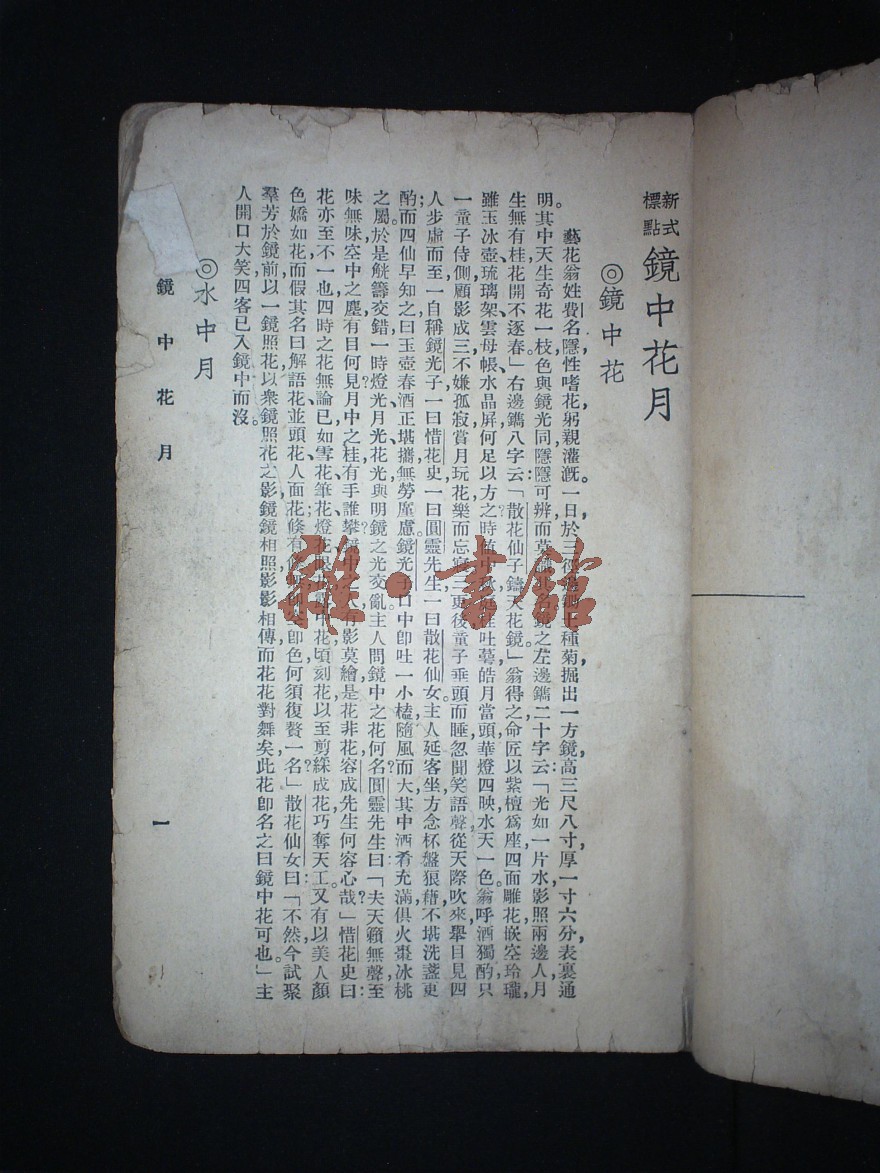 新式標點 鏡中花月
◎鏡中花
藝花翁姓費名隱性嗜花躬親灌漑。一日於三徑邊鋤 種菊掘出一方鏡高三尺八寸厚一寸六分表裏通
明其中天生奇花一枝色與鏡光同隱隱可辨而莫 鏡之左邊鐫二十字云：「光如一片水影照兩邊人月
生無有桂花開不逐春。」右邊鐫八字云：「散花仙子鑄天花鏡。」翁得之命匠以紫檀爲座四面雕花嵌空玲瓏，
雖玉冰壺琉璃架、雲母帳、水晶屛何足以方之時 吐蕚皓月當頭華燈四映水天一色。翁呼酒獨酌只
一童子侍側顧影成三不嫌孤寂賞月玩花樂而忘 三更後童子垂頭而睡忽聞笑語聲從天際吹來舉目見四
人步虛而至一自稱鏡光子一曰惜花史一曰圓靈先生一曰散花仙女。主人延客坐方念杯盤狼藉不堪洗盞更
酌而四仙早知之曰玉壺春酒正堪攜無勞廑慮。鏡光子口中卽吐一小榼隨風而大其中酒肴充滿俱火棗冰桃
之屬。於是觥籌交錯一時燈光月光花光與明鏡之光交亂主人問鏡中之花何名圓靈先生曰：「夫天籟無聲至
味無味空中之塵有目何見月中之桂有手誰攀鏡中之 有影莫繪是花非花容成先生何容心哉？」惜花史曰：
花亦至不一也四時之花無論已如雪花、筆花、燈花、眼 花頃刻花以至剪綵成花巧奪天工。又有以美人顏
色嬌如花而假其名曰解語花、並頭花、人面花；倏有 卽色何須復贅一名？」散花仙女曰：「不然今試聚
羣芳於鏡前以一鏡照花以衆鏡照花之影鏡鏡相照影影相傳而花花對舞矣此花卽名之曰鏡中花可也。」主
人開口大笑四客已入鏡中而沒。
◎水中月
鏡中花月
一
雜·書館